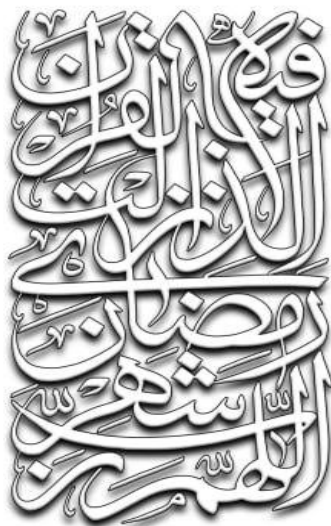 اللهم رب
شهر
رمضان
الذي انزلت
فيه القرآن